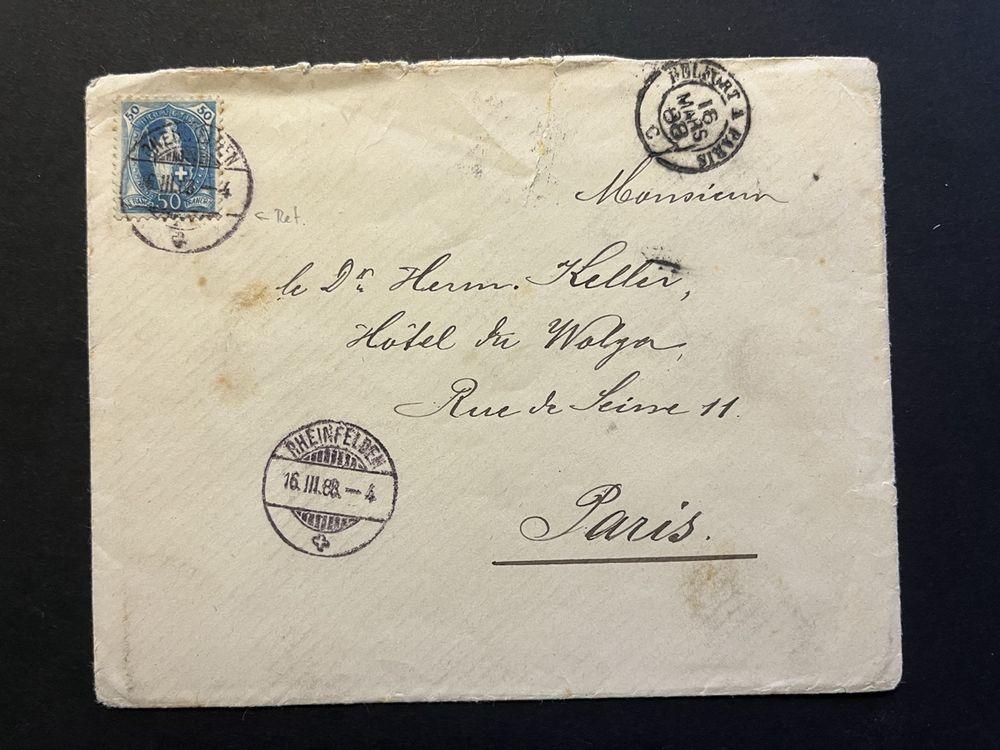 50 50
FRANCO
50
III.88.-4
< Ret.
BELFORT A PARIS
16
MARS
88
C
Monsieur
le Dr. Herm. Keller,
Hôtel du Wolga,
Rue de Seine 11.
Paris.
RHEINFELDEN
16. III.88.-4